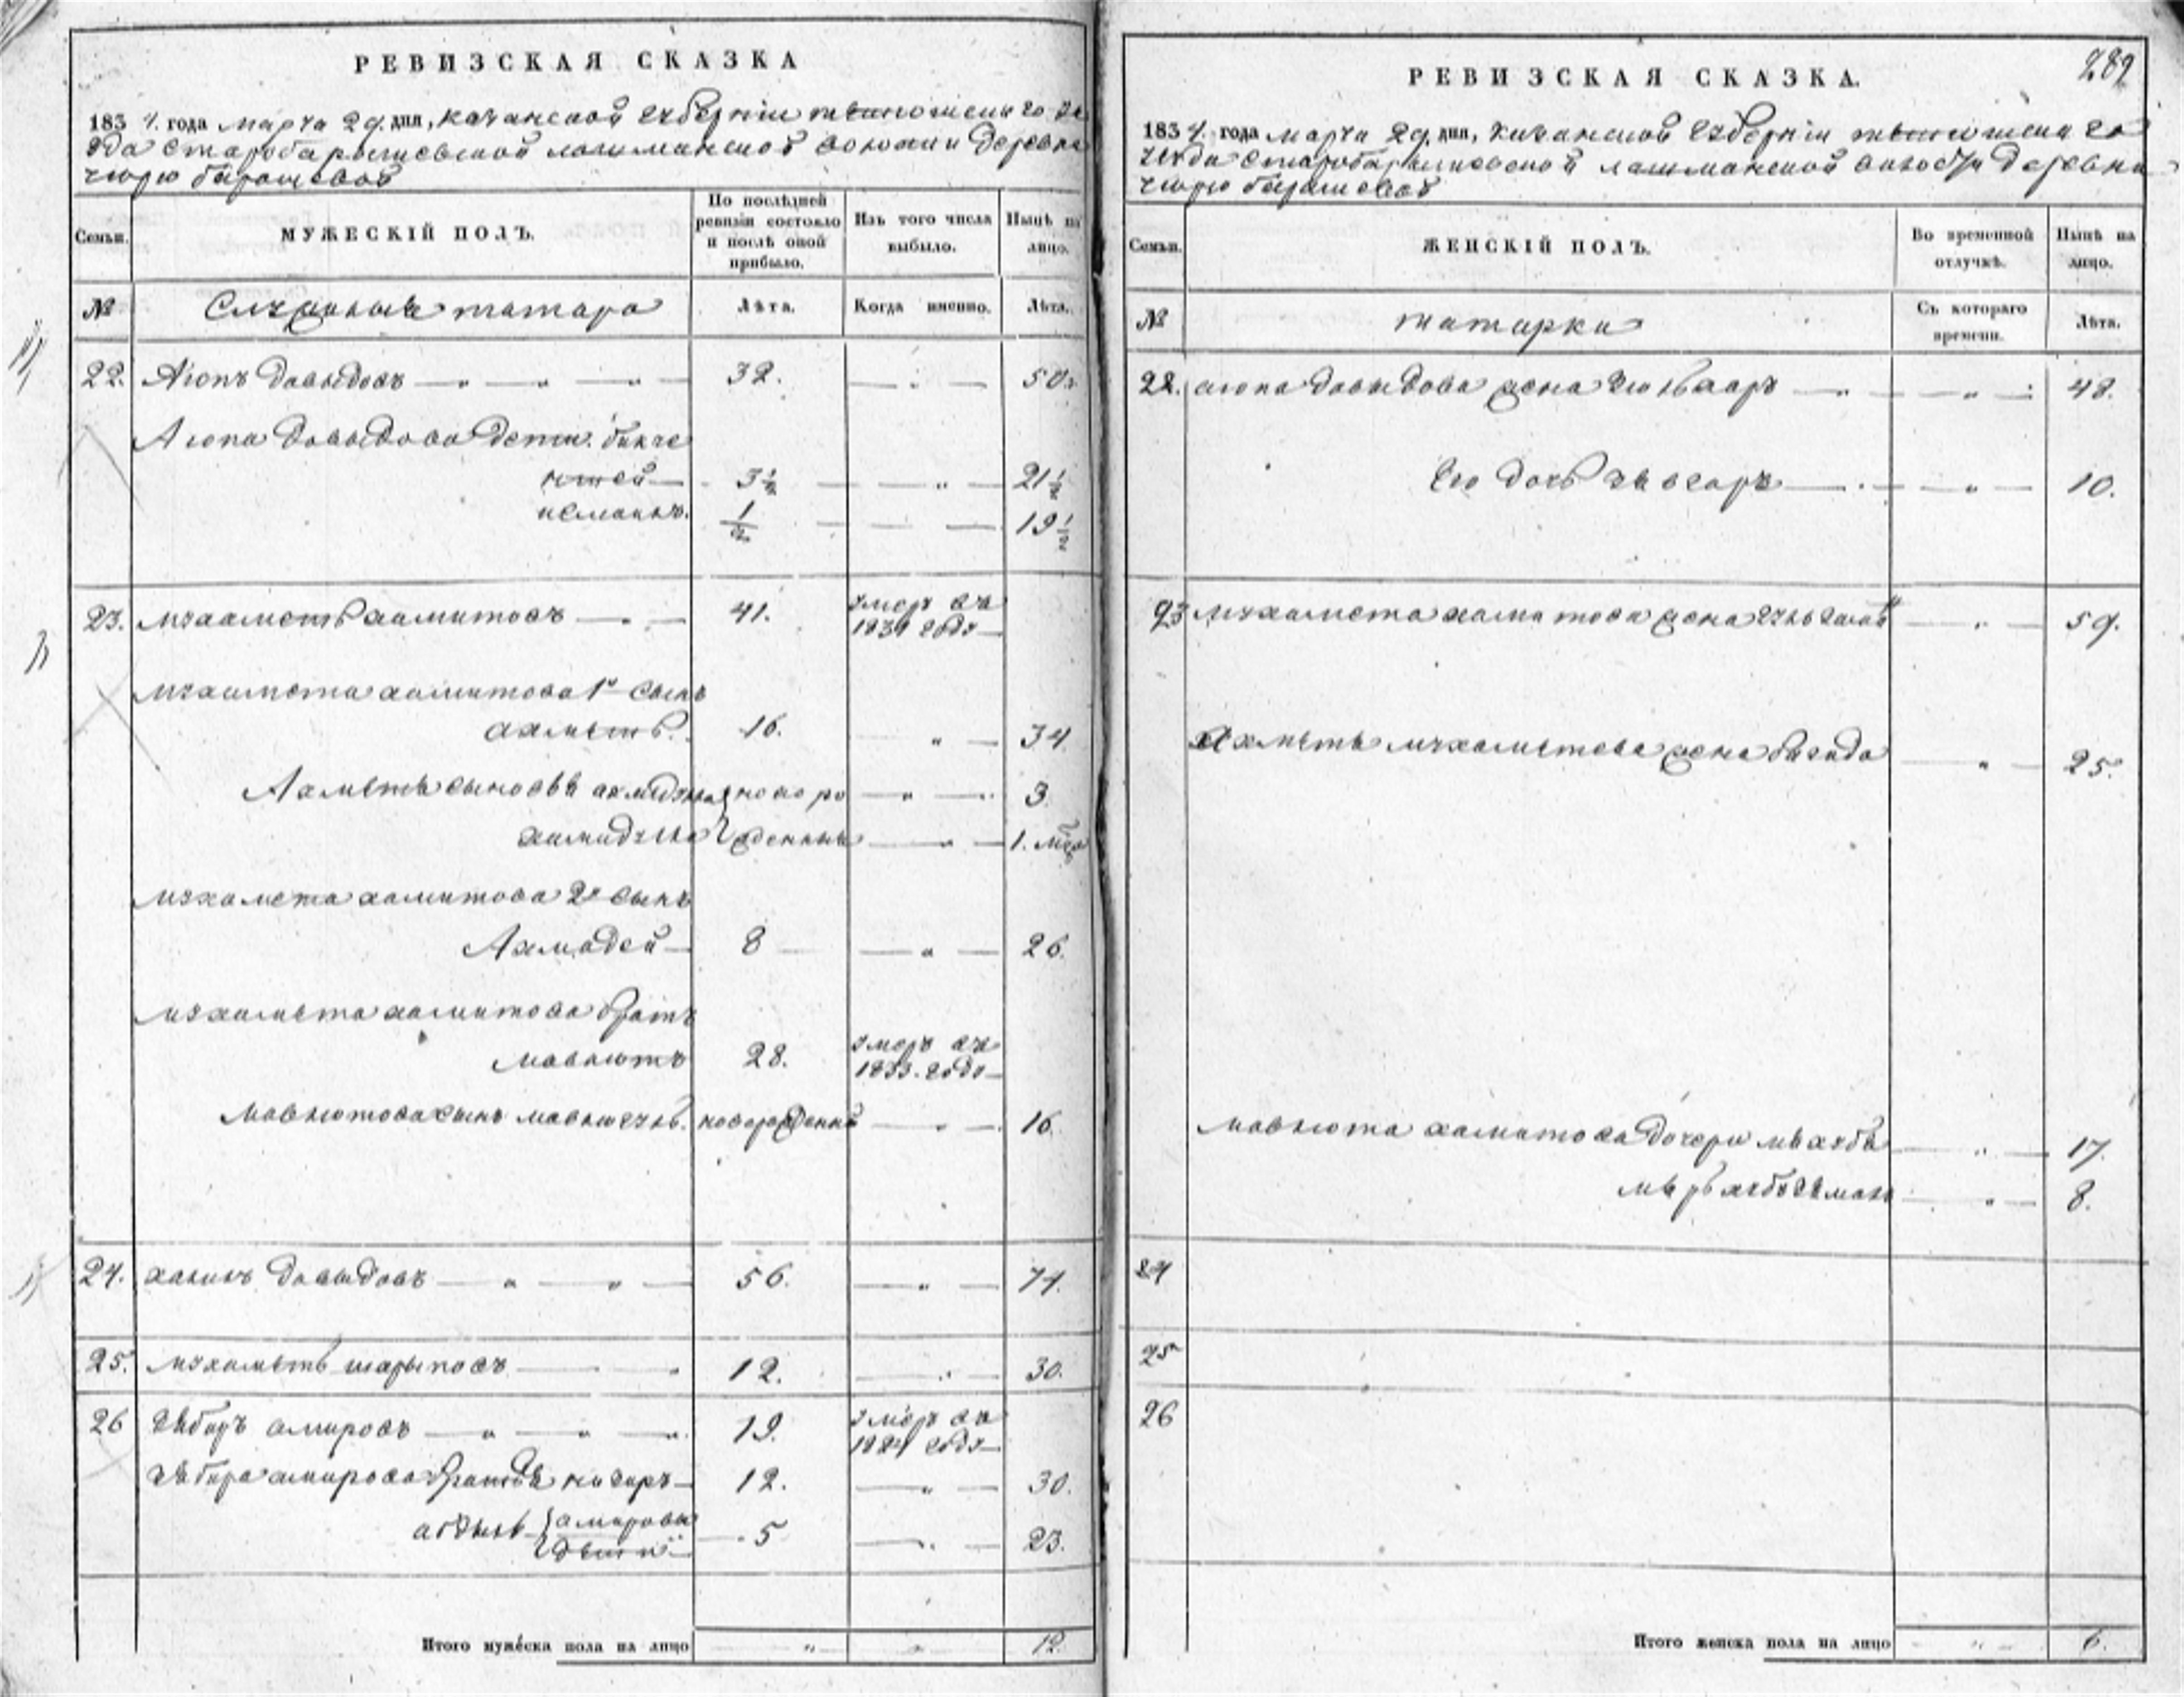 РЕВИЗСКАЯ СКАЗКА
1834. года марта 29. дня, казанской губернии тетюшскаго уе
зда старобарышевской лашманской волости деревни
чюрю барашевой
Семьи. МУЖЕСКІЙ ПОЛЪ. По послѣдней ревизіи состояло и послѣ оной прибыло. Изъ того числа выбыло. Нынѣ на лицо.
№ Служилыя татара Лѣта. Когда именно. Лѣта.
22. Аюпъ давыдовъ 32. 50.
Аюпа давыдова дети. бикче
нтей 3½ 21½
исмаилъ. ½ 19½
23. мухаметь хамитовъ 41. умеръ въ
1831 году
мухамета хамитова 1й сынъ
ахметь. 16. 34
Ахметя сыновья новоро 3.
жденныя 1. мѣс
мухамета хамитова 2й сынъ
Ахмадей 8 26.
мухамета хамитова братъ
мавлютъ 28. умеръ въ
1833. году
мавлютова сынъ новорожденный 16.
24. давыдовъ 56. 74.
25. мухаметь шарыповъ 12. 30.
26 амировъ 19. умеръ въ
1824 году
амирова братья 12. 30.
амировы 5 23.
дѣти
Итого мужеска пола на лицо 12.
289
РЕВИЗСКАЯ СКАЗКА.
1834. года марта 29. дня, казанской губернии тетюшскаго
уезда старобарышевской лашманской волости деревни
чюрю барашевой
Семьи. ЖЕНСКІЙ ПОЛЪ. Во временной отлучкѣ. Нынѣ на лицо.
№ татарки Съ котораго времени. Лѣта.
22. аюпа давыдова жена 48.
Его дочь 10.
23 мухамета хамитова жена 59.
Ахметь мухаметева жена 25.
мавлюта хамитова дочери 17.
8.
24
25
26
Итого женска пола на лицо 6.